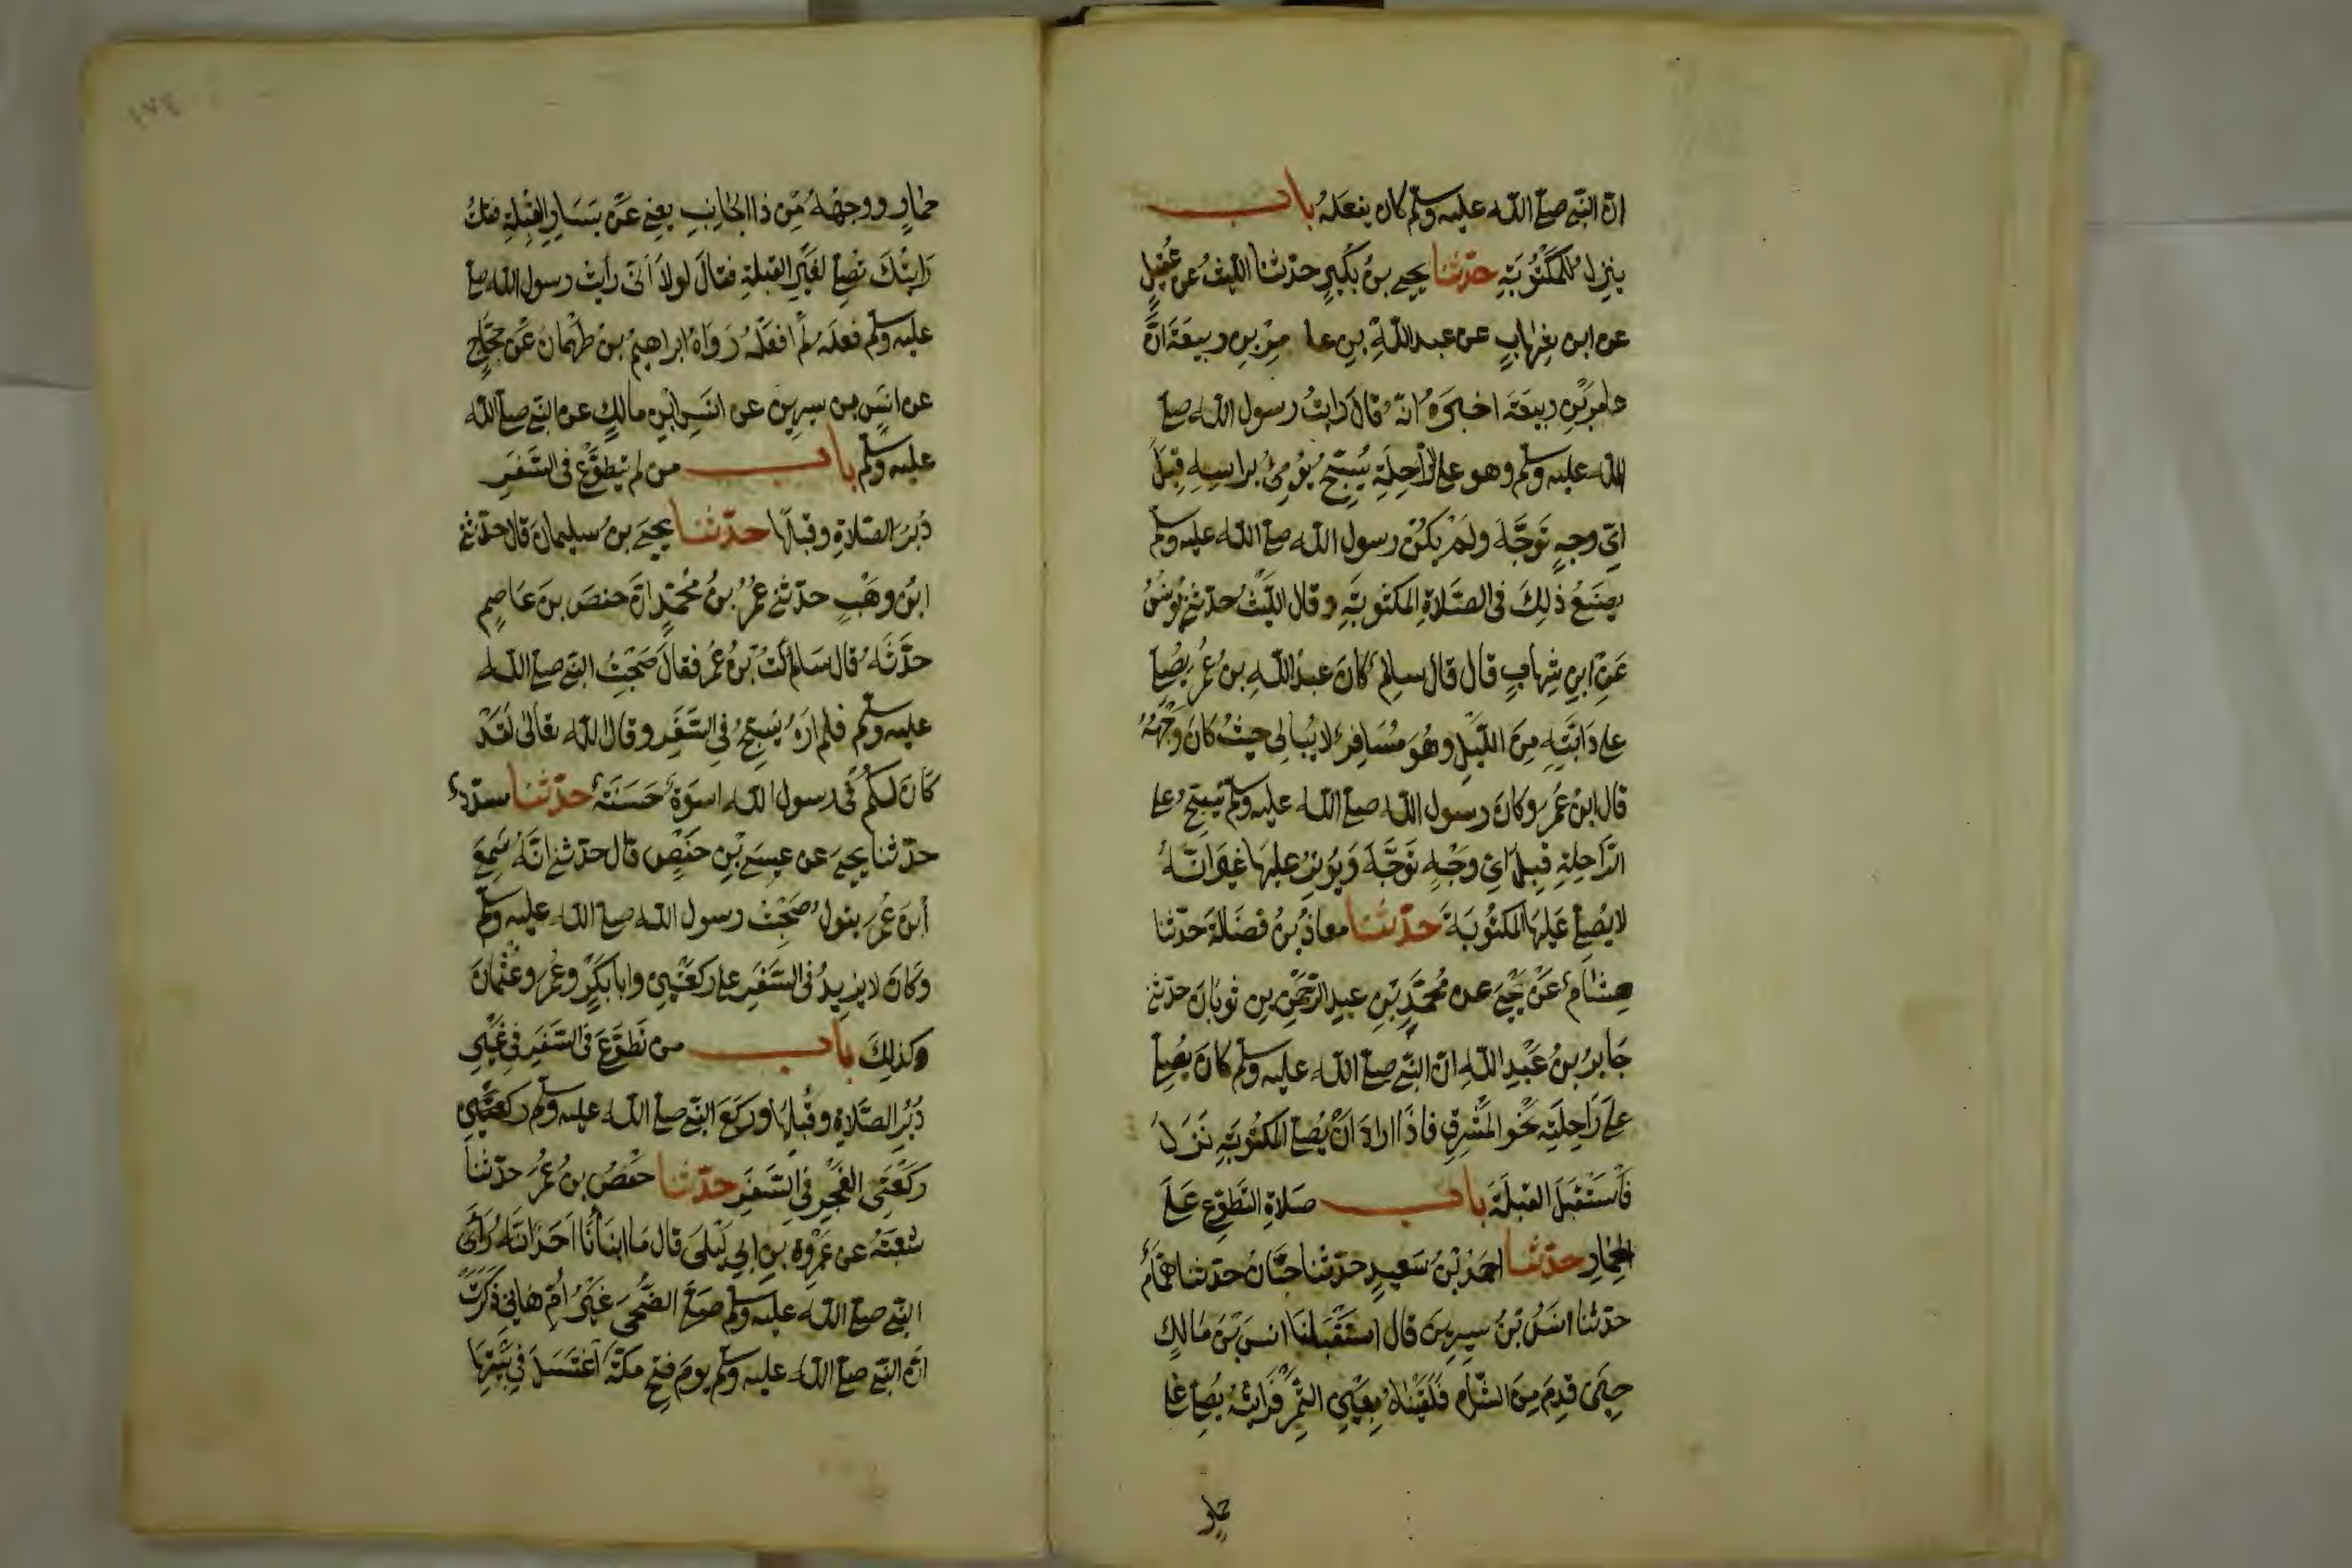 ان النبي صلى الله عليه وسلم كان يفعله باب
ينزل للمكتوبة حدثنا يحيى بن بكير حدثنا الليث عن عقيل
عن ابن شهاب عن عبد الله بن عا مر بن ربيعة ان
عامر بن ربيعة اخبره انه قال رايت رسول الله صلى
الله عليه وسلم وهو على الراحلة يسبح يومئ براسه قبل
اي وجه توجه ولم يكن رسول الله صلى الله عليه وسلم
يصنع ذلك في الصلاة المكتوبة وقال الليث حدثني يونس
عن ابن شهاب قال قال سالم كان عبد الله بن عمر يصلي
على دابته من الليل وهو مسافر لا يبالي حيث كان وجهه
قال ابن عمر وكان رسول الله صلى الله عليه وسلم يسبح على
الراحلة قبل اي وجه توجه ويوتر عليها غير انه
لا يصلي عليها المكتوبة حدثنا معاذ بن فضالة حدثنا
هشام عن يحيى عن محمد بن عبد الرحمن بن ثوبان حدثني
جابر بن عبد الله ان النبي صلى الله عليه وسلم كان يصلي
على راحلته نحو المشرق فاذا اراد ان يصلي المكتوبة نزل
فاستقبل القبلة باب صلاة التطوع على
الحمار حدثنا احمد بن سعيد حدثنا حبان حدثنا همام
حدثنا انس بن سيرين قال استقبلنا انس بن مالك
حين قدم من الشام فلقيناه بعين التمر فرايته يصلي على
حمار
١٧٤
حمار ووجهه من ذا الجانب يعني عن يسار القبلة فقلت
رايتك تصلي لغير القبلة فقال لولا اني رأيت رسول الله صلى
عليه وسلم فعله لم افعله رواه ابراهيم بن طهمان عن حجاج
عن انس بن سيرين عن انس ابن مالك عن النبي صلى الله
عليه وسلم باب من لم يتطوع في السفر
دبر الصلاة وقبلها حدثنا يحيى بن سليمان قال حدثني
ابن وهب حدثني عمر بن محمد ان حفص بن عاصم
حدثه قال سالت ابن عمر فقال صحبت النبي صلى الله
عليه وسلم فلم اره يسبح في السفر وقال الله تعالى لقد
كان لكم في رسول الله اسوة حسنة حدثنا مسدد
حدثنا يحيى عن عيسى بن حفص قال حدثني انه سمع
ابن عمر يقول صحبت رسول الله صلى الله عليه وسلم
وكان لا يزيد في السفر على ركعتين وابا بكر وعمر وعثمان
وكذلك باب من تطوع في السفر في غير
دبر الصلاة وقبلها وركع النبي صلى الله عليه وسلم ركعتين
ركعتي الفجر في السفر حدثنا حفص بن عمر حدثنا
شعبة عن عمرو بن ابي ليلى قال ما انبأنا احد انه رأى
النبي صلى الله عليه وسلم صلى الضحى غير ام هانئ ذكرت
ان النبي صلى الله عليه وسلم يوم فتح مكة اغتسل في بيتها